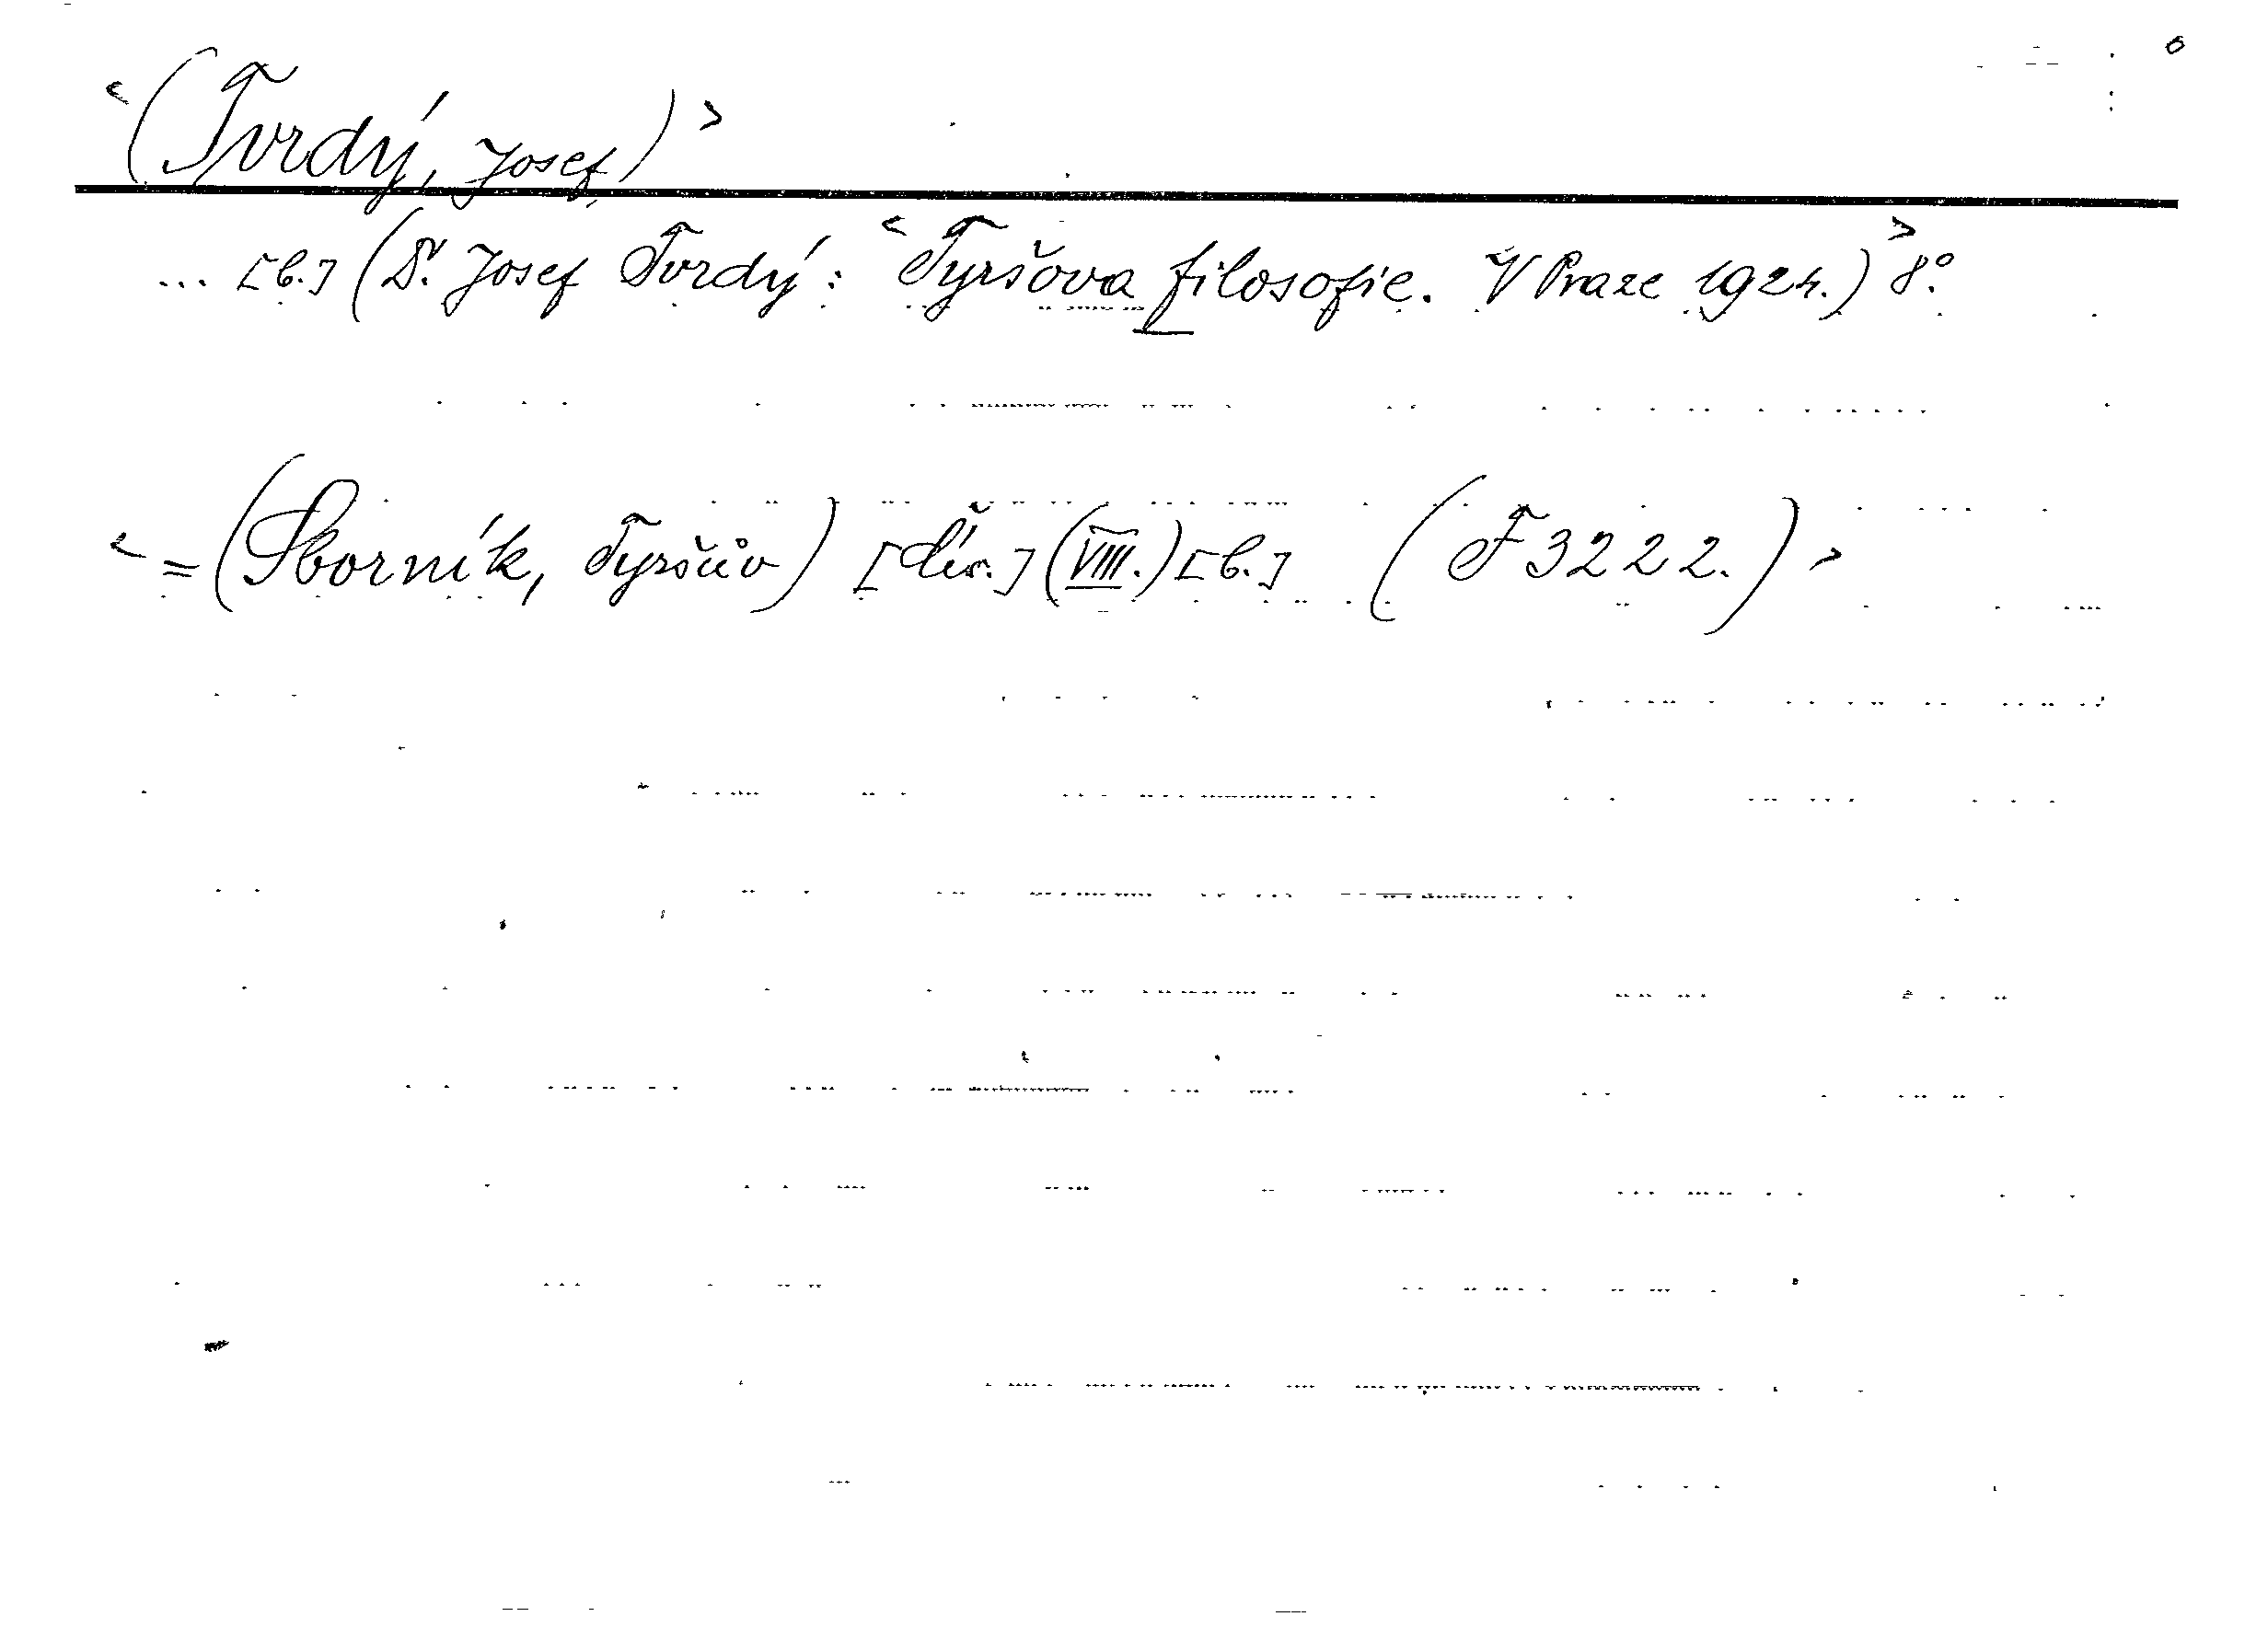 <(Tvrdý, Josef)>
... [b.] (Dr. Josef Tvrdý: <Tyršova filosofie. V Praze 1924.)> 8°.
<=(Sborník, Tyršův) [čís.] (VIII.) [b.] (F 3222.)>